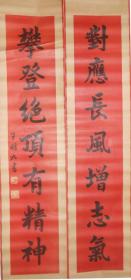 對應長風增志氣
攀登絕頂有精神